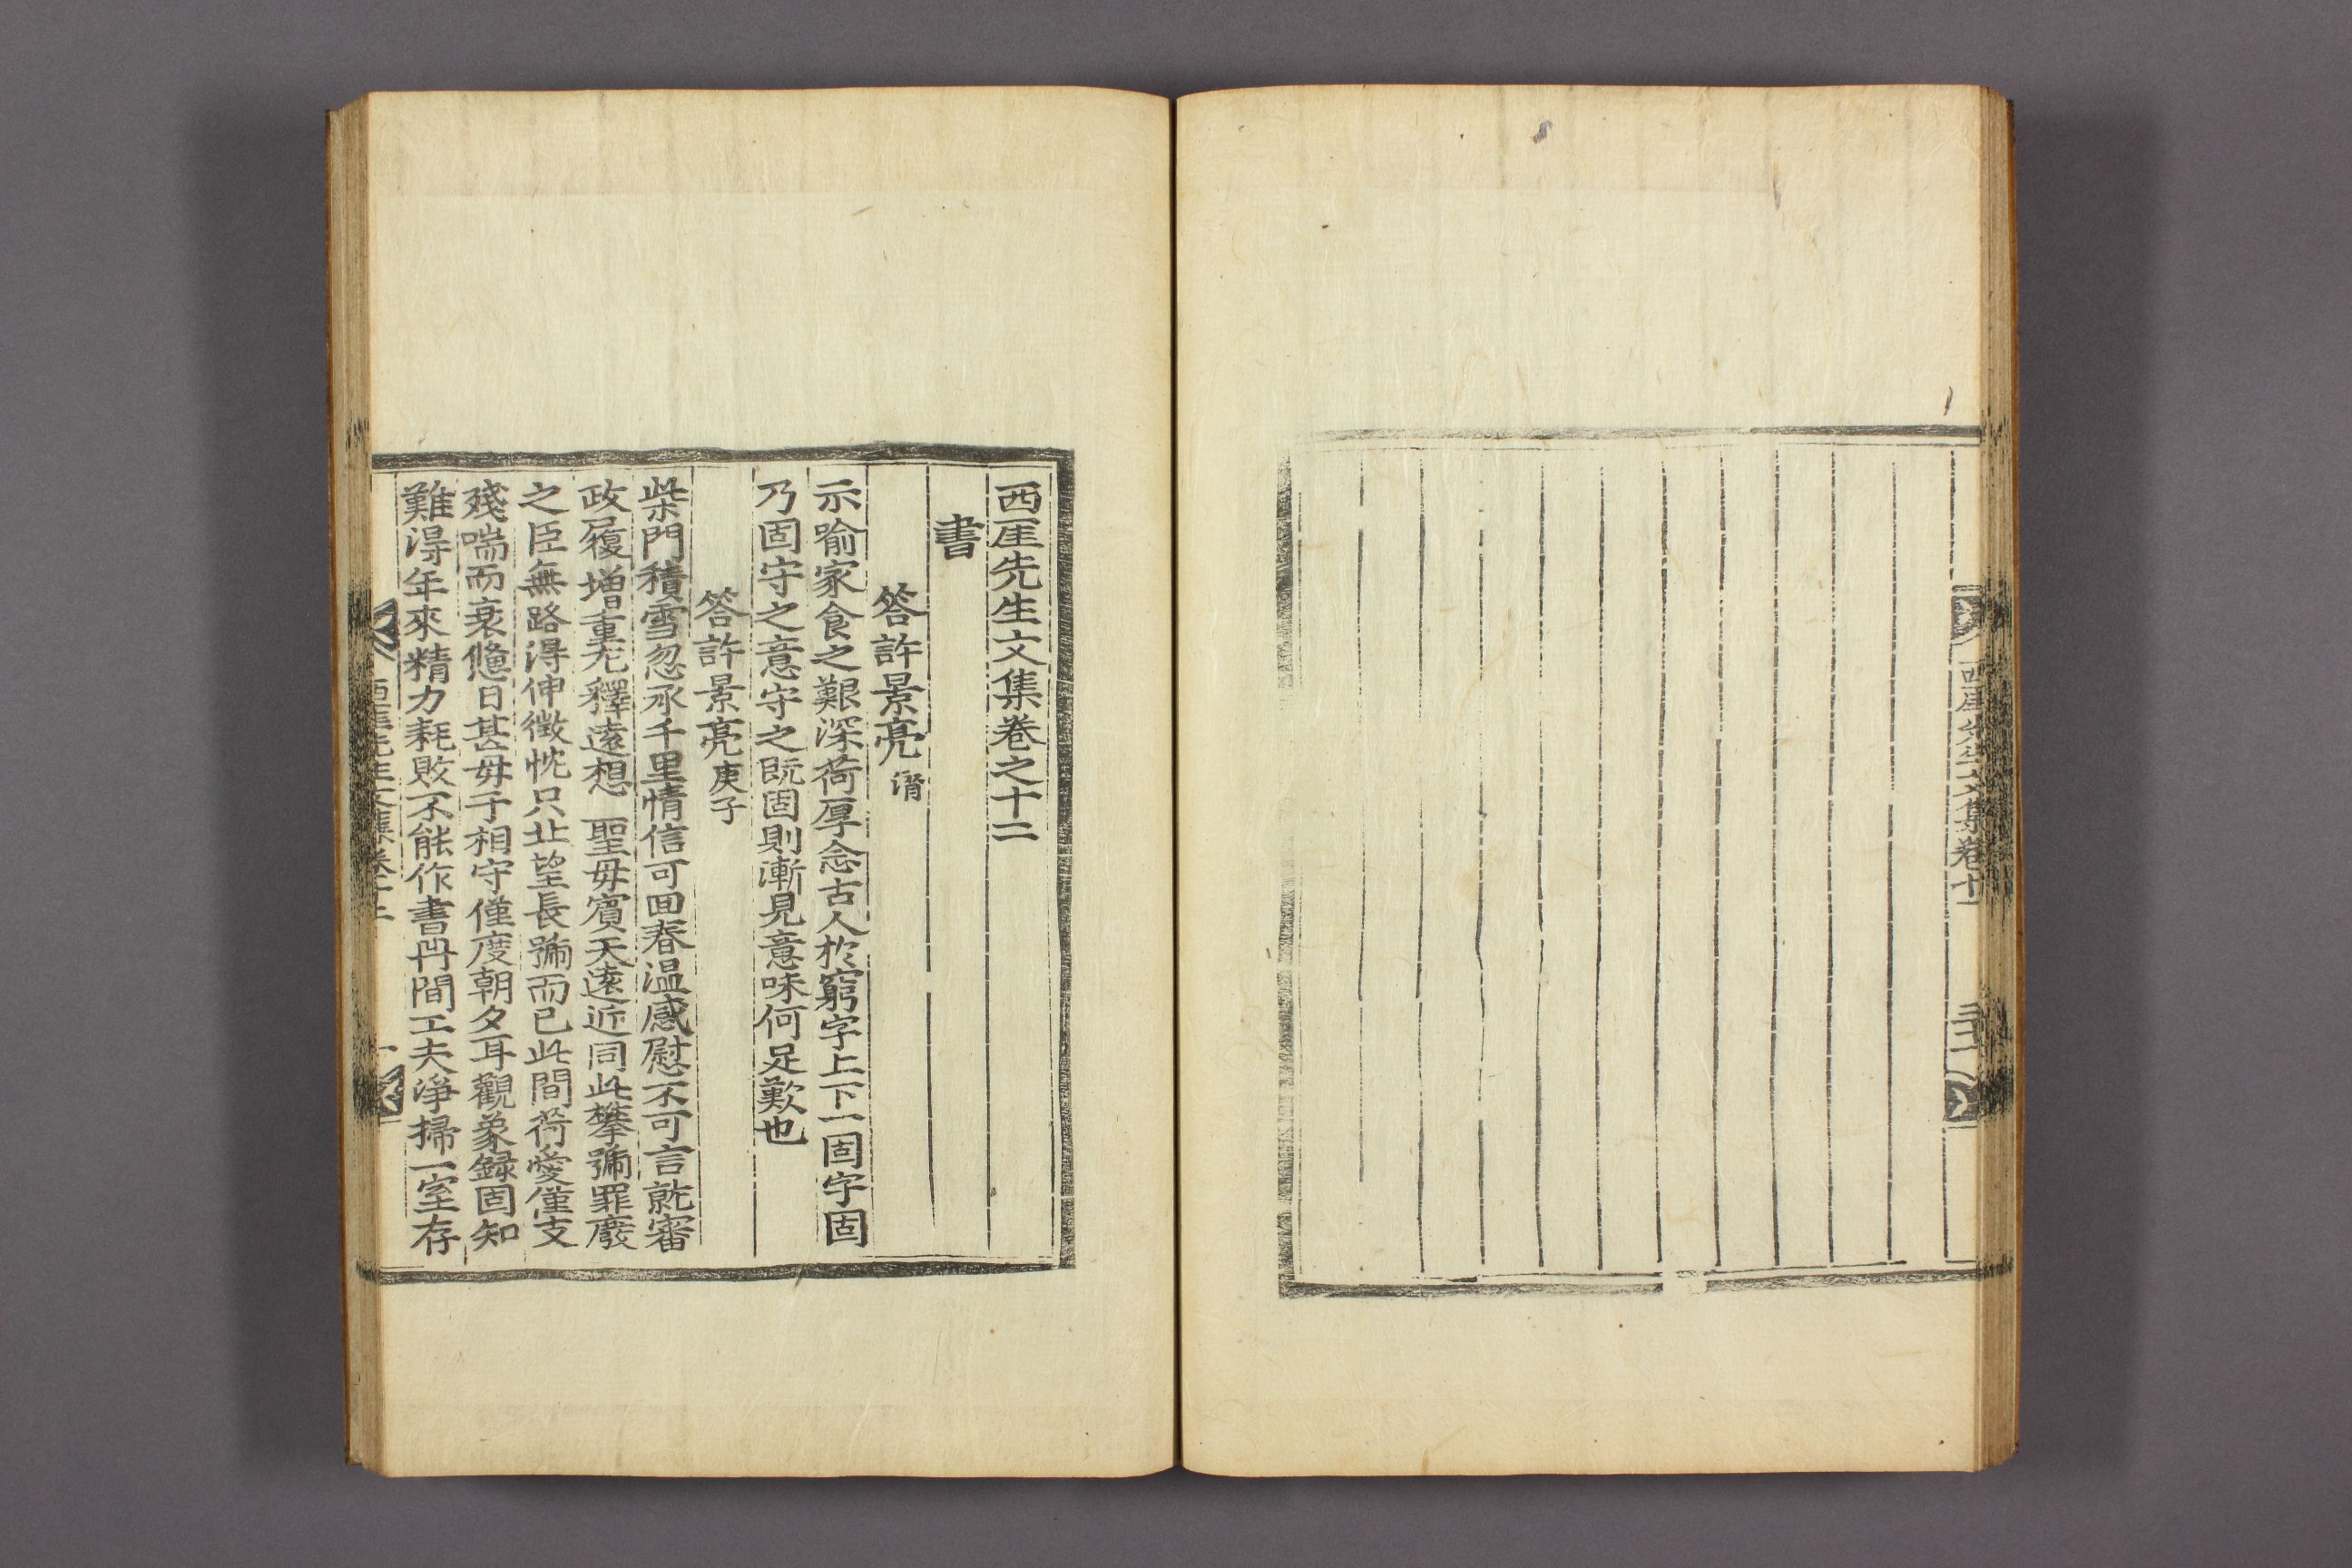 西厓先生文集卷十一
西厓先生文集卷之十二
書
答許景亮 㵛
示喻家食之艱深荷厚念古人於窮字上下一固字固
乃固守之意守之旣固則漸見意味何足歎也
答許景亮 庚子
柴門積雪忽承千里情信可回春溫感慰不可言就審
政履增重尤釋遠想 聖母賓天遠近同此攀號罪廢
之臣無路得伸微忱只北望長號而已此間荷愛僅支
殘喘而衰憊日甚毋子相守僅度朝夕耳觀象錄固知
難得年來精力耗敗不能作書丹間工夫淨掃一室存
西厓先生文集卷十二
一